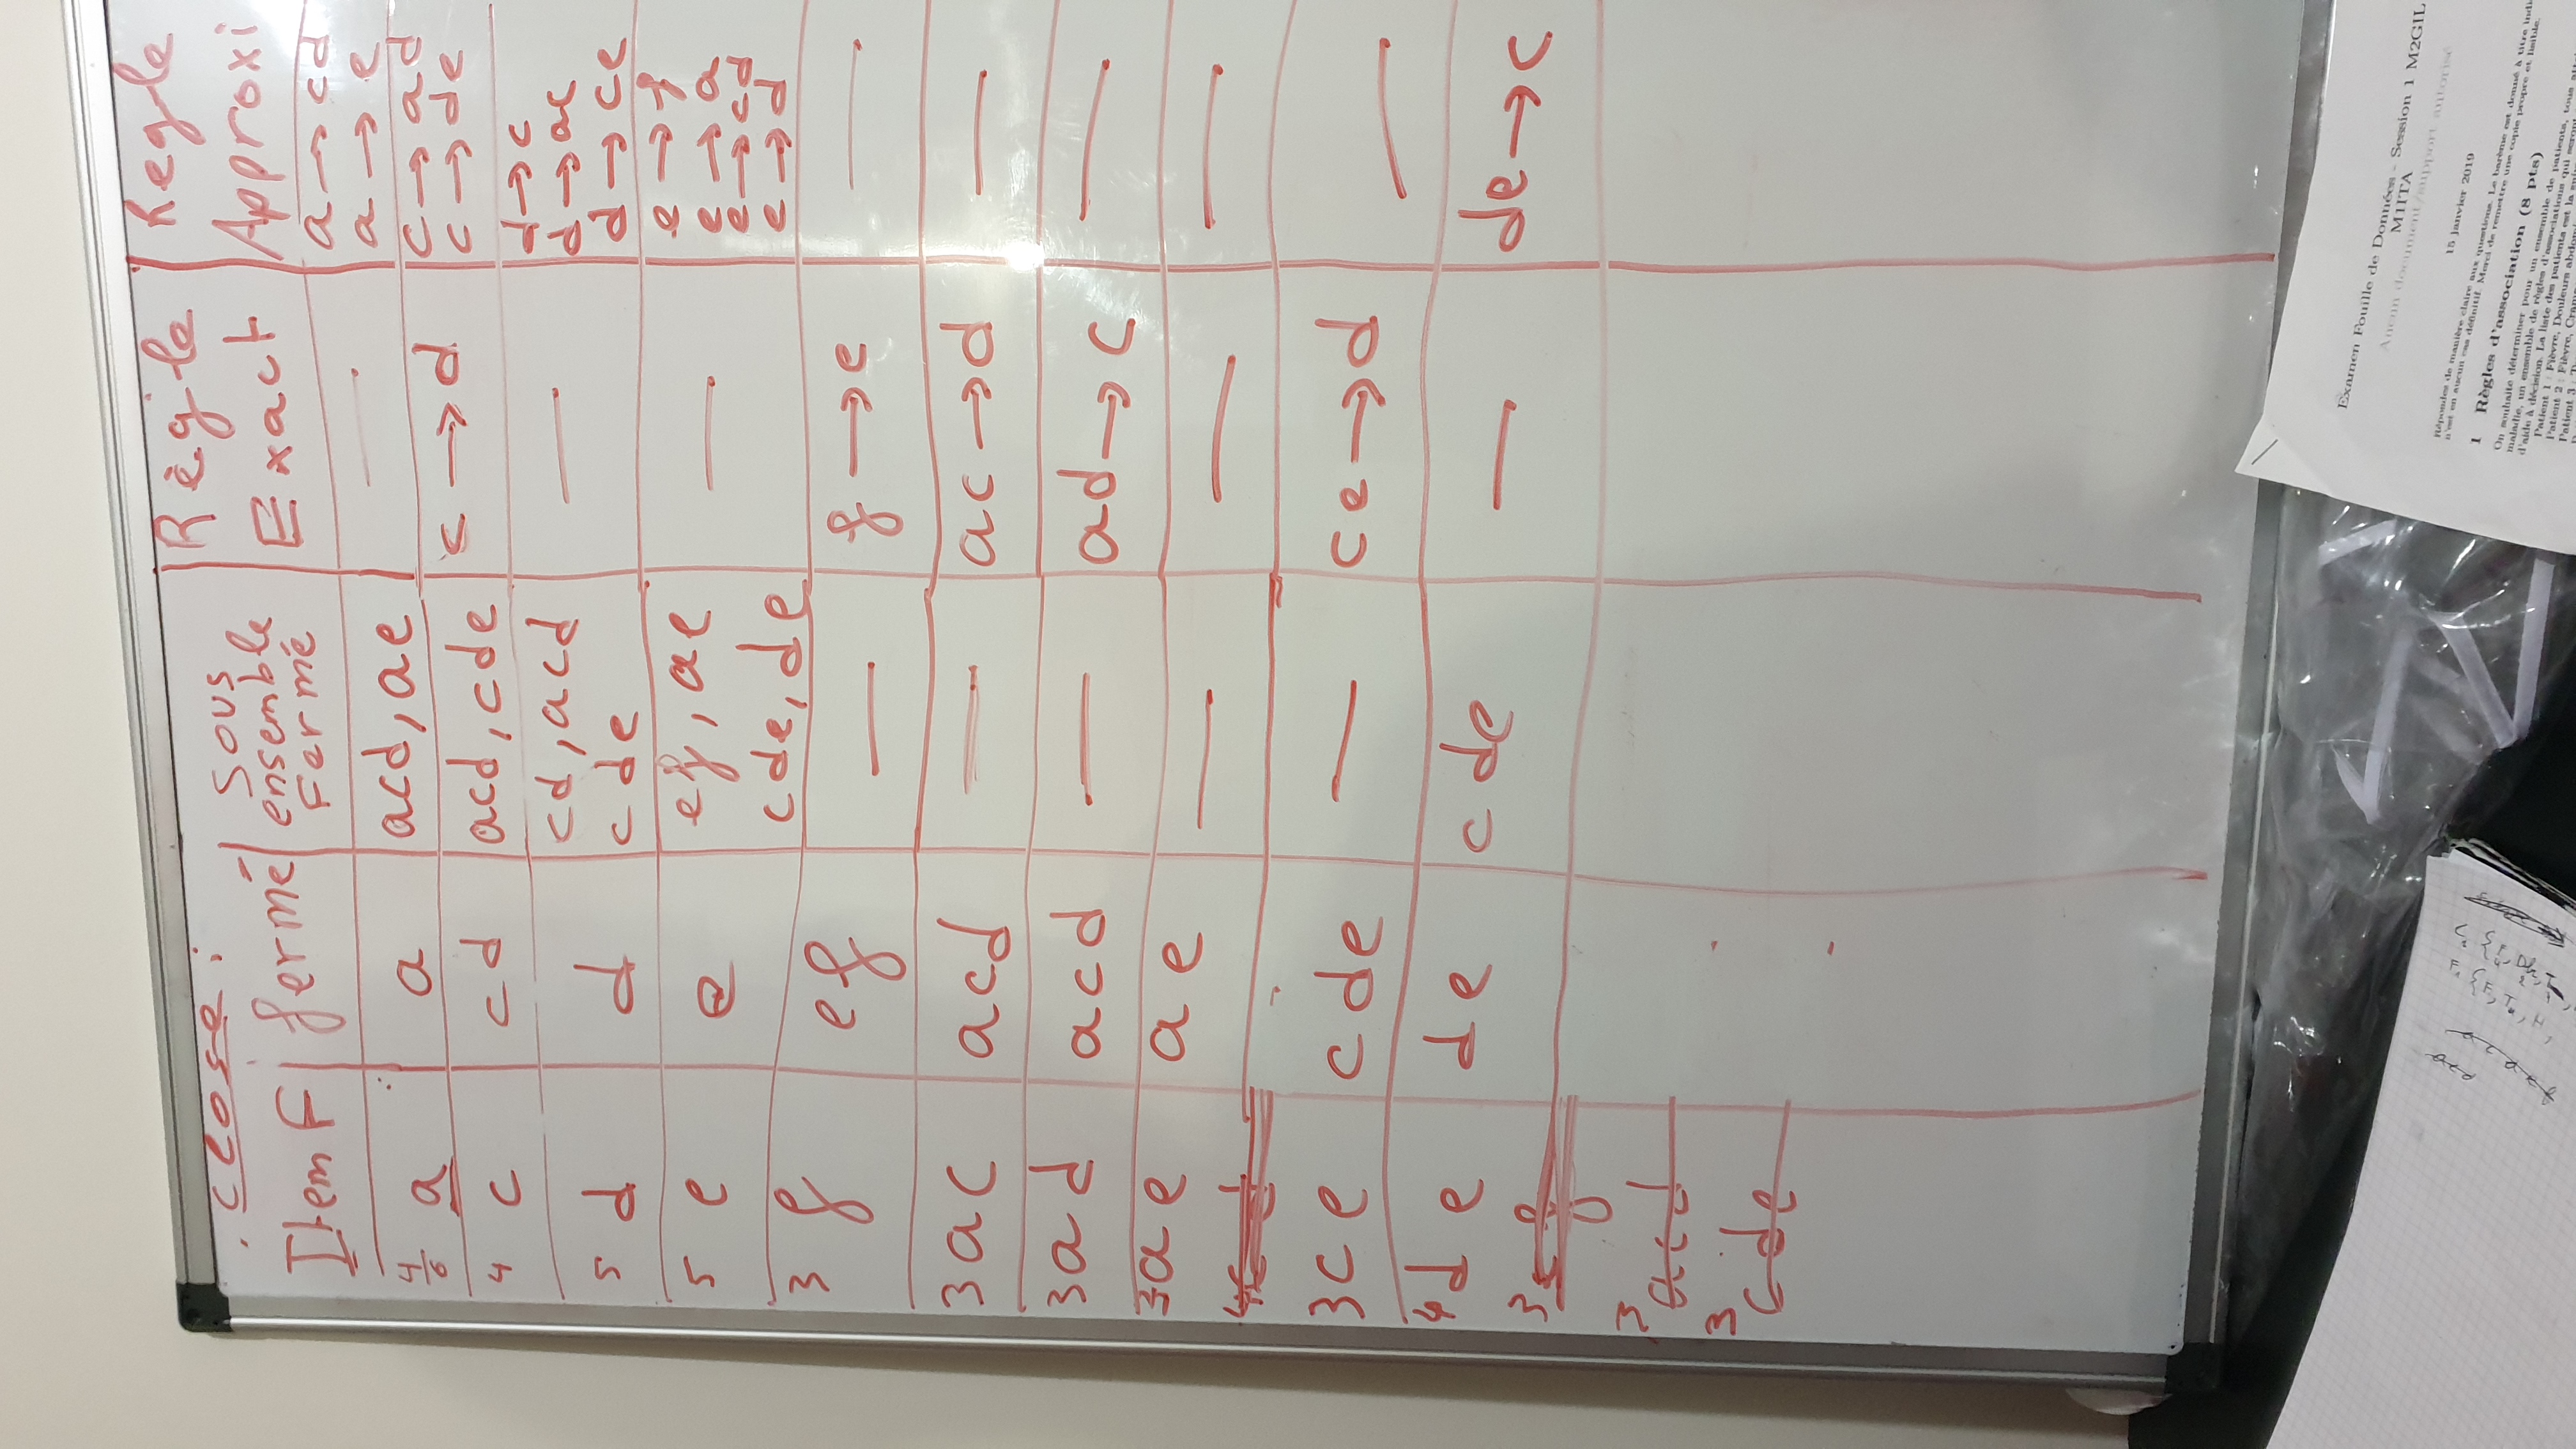 . close :
Item F | fermé | Sous ensemble Fermé | Règle Exact | Regle Approxi
4/6 a | a | acd, ae | — | a → cd
a → e
4 c | cd | acd, cde | c → d | c → ad
c → de
5 d | d | cd, acd | — | d → c
d → ac
cde | d → ce
5 e | e | ef, ae | — | e → f
e → a
e → cd
cde, de | e → d
3 f | ef | — | f → e | —
3 ac | acd | — | ac → d | —
3 ad | acd | — | ad → c | —
3 ae | ae | — | — | —
3 ce | cde | — | ce → d | —
4 de | de | cde | — | de → c
3
3 acd
3 cde
Examen Fouille de Données - Session 1 M2GIL
M1ITA
Aucun document/support autorisé
15 janvier 2019
Répondes de manière claire aux questions. Le barème est donné à titre indi
n'est en aucun cas définitif. Merci de remettre une copie propre et lisible.
1 Règles d'association (8 pts)
On souhaite déterminer pour un ensemble de patients, tous
maladie, un ensemble de règles d'associations qui seront
d'aide à décision. La liste des patients est la
Patient 1 : Fièvre, Douleurs abdom
Patient 2 : Fièvre, Cram
Patient 3 :